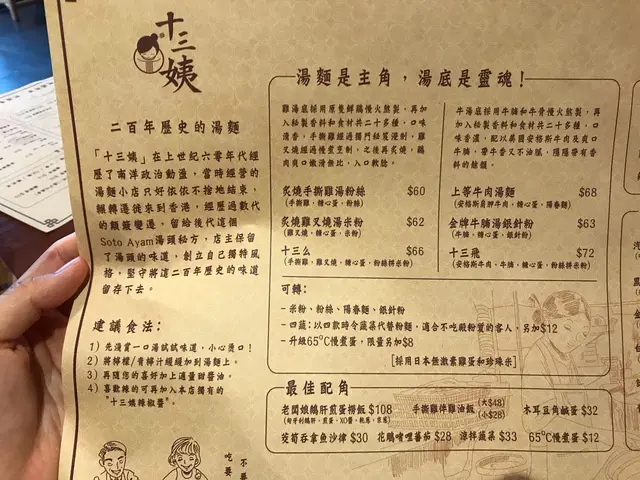 十三姨
二百年歷史的湯麵
「十三姨」在上世紀六零年代經
歷了南洋政治動盪，當時經營的
湯麵小店只好依依不捨地結束，
輾轉遷徙來到香港，經歷過數代
的顛簸變遷，留給後代這個
Soto Ayam湯頭秘方，店主保留
了湯頭的味道，創立自己獨特風
格，堅守將這二百年歷史的味道
留存下去。
建議食法：
1) 先淺嘗一口湯試試味道，小心燙口！
2) 將檸檬/青檸汁緩緩加到湯麵上。
3) 再隨您的喜好加上適量甜醬油。
4) 喜歡辣的可再加入本店獨有的
"十三姨辣椒醬"。
湯麵是主角，湯底是靈魂！
雞湯底採用原隻鮮鷄慢火熬製，再
加入秘製香料和食材共二十多種，口味
清香。手撕雞經過獨門秘笈浸制，雞
叉燒經過慢煮烹制，之後再炙燒，鷄
肉爽口嫩滑無比，入口軟腍。
炙燒手撕雞湯粉絲 $60
(手撕雞，糖心蛋，粉絲)
炙燒雞叉燒湯米粉 $62
(雞叉燒，糖心蛋，米粉)
十三么 $66
(手撕雞，雞叉燒，糖心蛋，粉絲拼米粉)
牛湯底採用牛腩和牛骨慢火熬製，再
加入秘製香料和食材共二十多種，口
味香濃，配以美國安格斯牛肉及爽口
牛腩，帶牛香又不油膩，隱隱帶有香
料的餘韻。
上等牛肉湯麵 $68
(安格斯肩胛牛肉，糖心蛋，陽春麵)
金牌牛腩湯銀針粉 $63
(牛腩，糖心蛋，銀針粉)
十三飛 $72
(安格斯牛肉，牛腩，糖心蛋，粉絲拼米粉)
可轉：
- 米粉、粉絲、陽春麵、銀針粉
- 四蔬：以四款時令蔬菜代替粉麵，適合不吃澱粉質的客人，另加$12
- 升級65°C慢煮蛋，限量另加$8
[採用日本無激素雞蛋和珍珠米]
最佳配角
老闆娘鵝肝煎蛋撈飯 $108
手撕雞伴雞油飯 (大$48)
(小$28)
木耳豆角鹹蛋 $32
茭筍吞拿魚沙律 $30
花鵰啫哩蕃茄 $28
涼拌蔬菜 $33
65°C慢煮蛋 $12